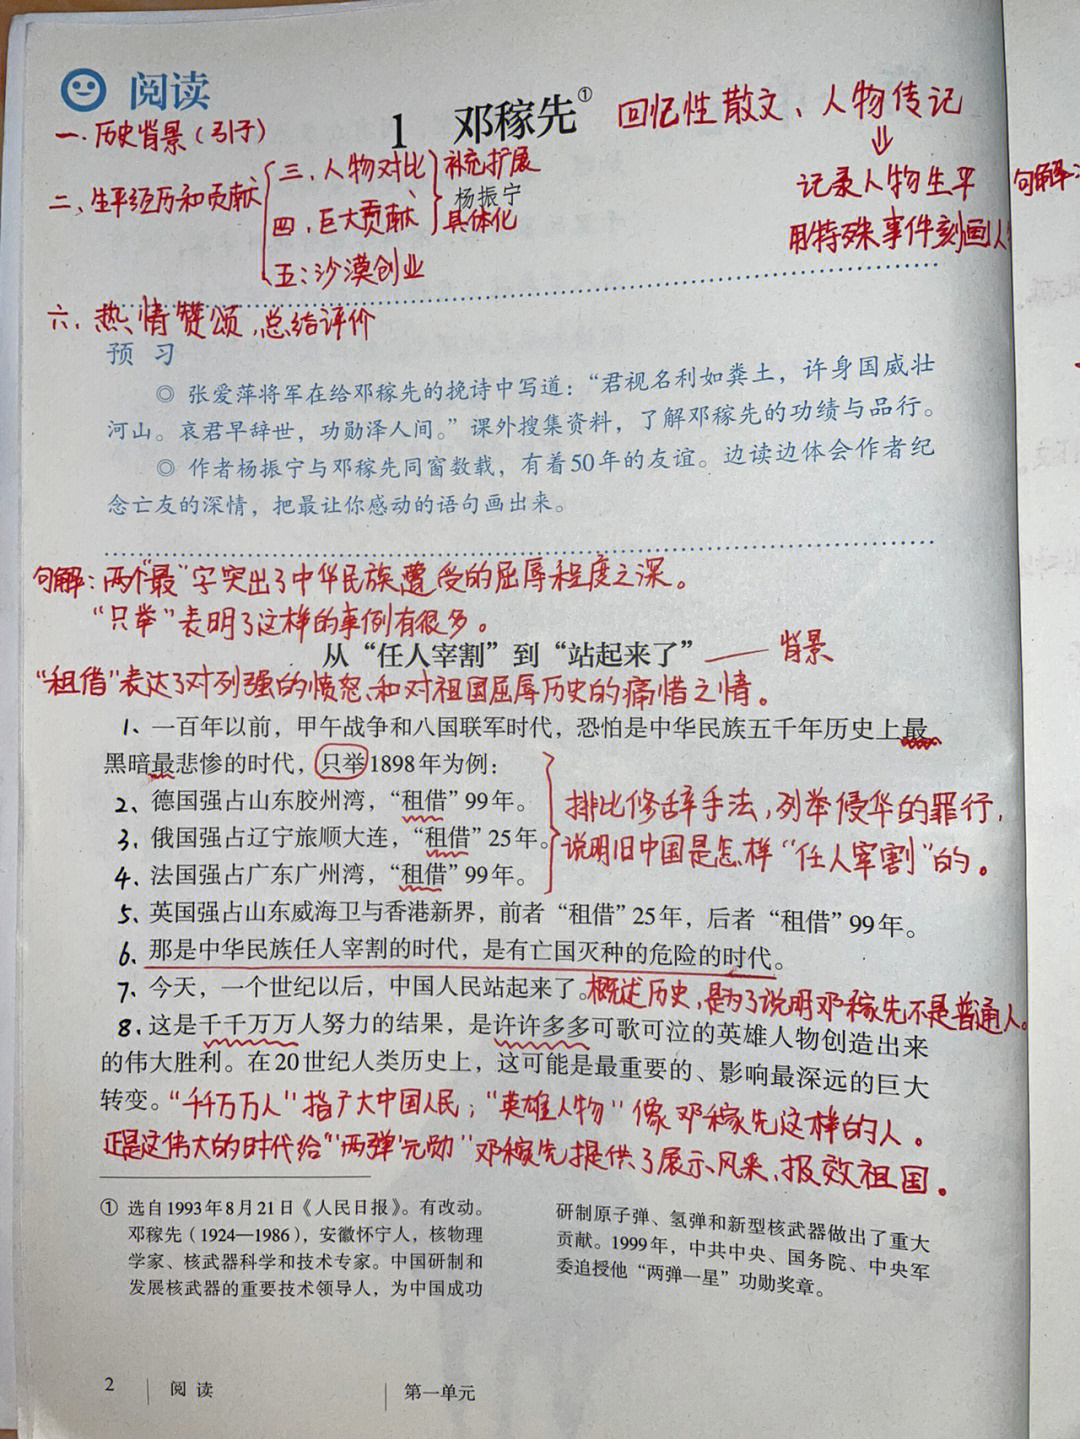 阅读
1 邓稼先① 回忆性散文、人物传记
⇓
一、历史背景（引子）
二、生平经历和贡献
三、人物对比
四、巨大贡献
五：沙漠创业
补充扩展
杨振宁
具体化
记录人物生平
用特殊事件刻画人
句解：
六、热情赞颂,总结评价
预 习
◎ 张爱萍将军在给邓稼先的挽诗中写道：“君视名利如粪土，许身国威壮
河山。哀君早辞世，功勋泽人间。”课外搜集资料，了解邓稼先的功绩与品行。
◎ 作者杨振宁与邓稼先同窗数载，有着50年的友谊。边读边体会作者纪
念亡友的深情，把最让你感动的语句画出来。
句解：两个“最”字突出了中华民族遭受的屈辱程度之深。
“只举”表明了这样的事例有很多。
从“任人宰割”到“站起来了” —— 背景
“租借”表达了对列强的愤怒、和对祖国屈辱历史的痛惜之情。
1、一百年以前，甲午战争和八国联军时代，恐怕是中华民族五千年历史上最
黑暗最悲惨的时代，只举1898年为例：
2、德国强占山东胶州湾，“租借”99年。
3、俄国强占辽宁旅顺大连，“租借”25年。
4、法国强占广东广州湾，“租借”99年。
排比修辞手法,列举侵华的罪行,
说明旧中国是怎样“任人宰割”的。
5、英国强占山东威海卫与香港新界，前者“租借”25年，后者“租借”99年。
6、那是中华民族任人宰割的时代，是有亡国灭种的危险的时代。
7、今天，一个世纪以后，中国人民站起来了。概述历史,是为了说明邓稼先不是普通人。
8、这是千千万万人努力的结果，是许许多多可歌可泣的英雄人物创造出来
的伟大胜利。在20世纪人类历史上，这可能是最重要的、影响最深远的巨大
转变。“千千万万人”指广大中国人民；“英雄人物”像邓稼先这样的人。
正是这伟大的时代给“‘两弹’元勋”邓稼先提供了展示风采、报效祖国。
① 选自1993年8月21日《人民日报》。有改动。
邓稼先（1924—1986），安徽怀宁人，核物理
学家、核武器科学和技术专家。中国研制和
发展核武器的重要技术领导人，为中国成功
研制原子弹、氢弹和新型核武器做出了重大
贡献。1999年，中共中央、国务院、中央军
委追授他“两弹一星”功勋奖章。
2 阅 读 第一单元